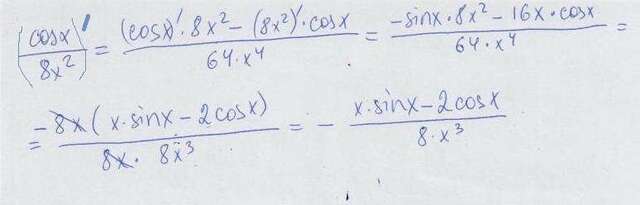 (cosx / 8x²)' = ((cosx)' · 8x² − (8x²)' · cosx) / (64·x⁴) = (−sinx · 8x² − 16x · cosx) / (64·x⁴) =
= (−8x (x·sinx − 2cosx)) / (8x · 8x³) = − (x·sinx − 2cosx) / (8·x³)